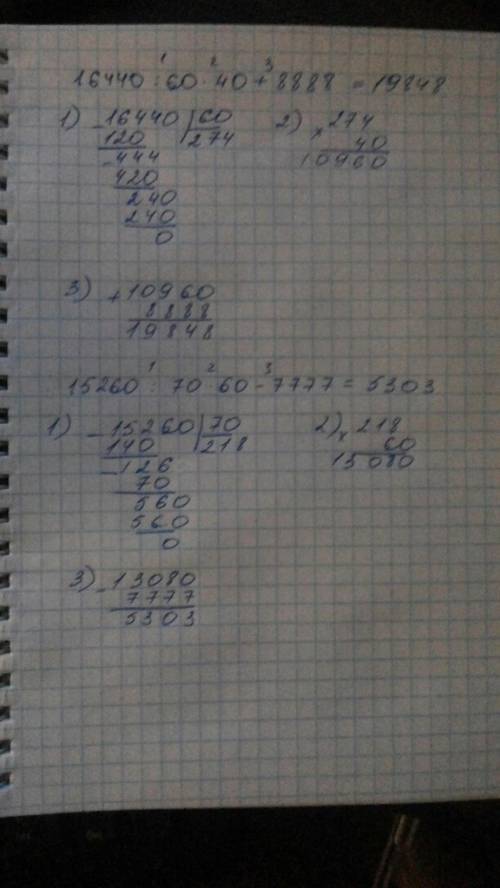 1 2 3
16440 : 60 · 40 + 8888 = 19848
1) - 16440 | 60 2) × 274
120 274 40
- 444 10960
420
240
240
0
3) + 10960
8888
19848
1 2 3
15260 : 70 · 60 - 7777 = 5303
1) - 15260 | 70 2) × 218
140 218 60
- 126 13080
70
560
560
0
3) - 13080
7777
5303